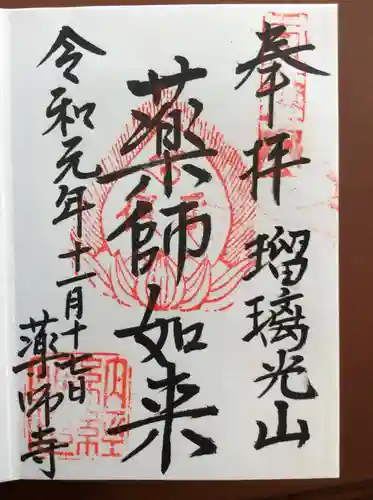 奉拝 瑠璃光山
薬師如来
令和元年十一月十七日
薬師寺
納経